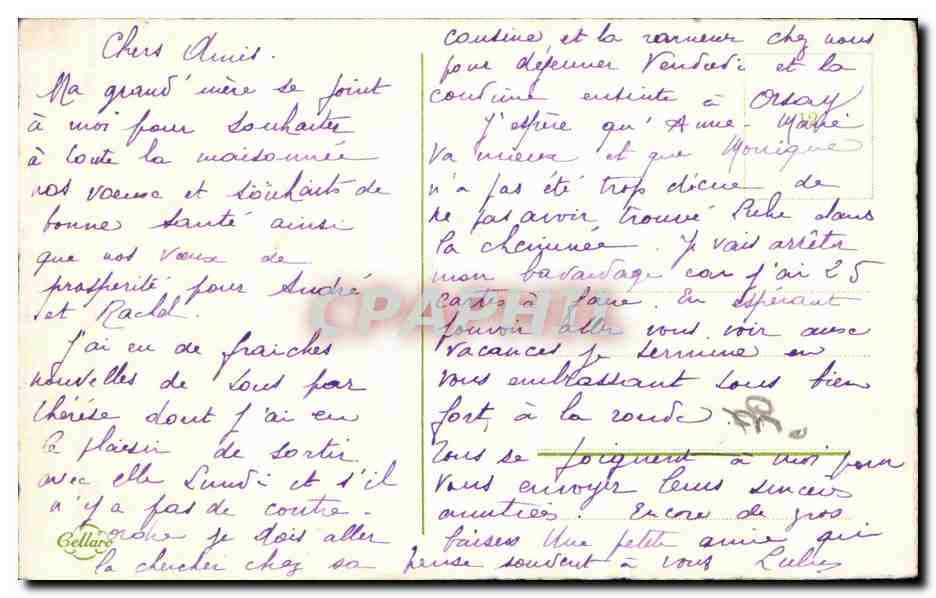 Chers Amis.
Ma grand'mère se joint
à moi pour souhaiter
à toute la maisonnée
nos voeux et souhaits de
bonne santé ainsi
que nos voeux de
prospérité pour André
et Rachel.
J'ai eu de fraiches
nouvelles de vous par
thérèse dont j'ai eu
le plaisir de sortir
avec elle Lundi et s'il
n'y a pas de contre-
ordre je dois aller
la chercher chez sa
cousine et la ramener chez nous
pour déjeuner Vendredi et la
conduire ensuite à Orsay
J'espère qu'Anne-Marie
va mieux et que Monique
n'a pas été trop déçue de
ne pas avoir trouvé dans
la cheminée. Je vais arrêter
mon bavardage car j'ai 25
cartes à faire. En espérant
pouvoir aller vous voir aux
vacances je termine en
vous embrassant tous bien
fort, à la ronde.
30
Tous se joignent à moi pour
vous envoyer leurs sincères
amitiés. Encore de gros
baisers Une petite amie qui
pense souvent à vous
Cellard
CPAPHIL